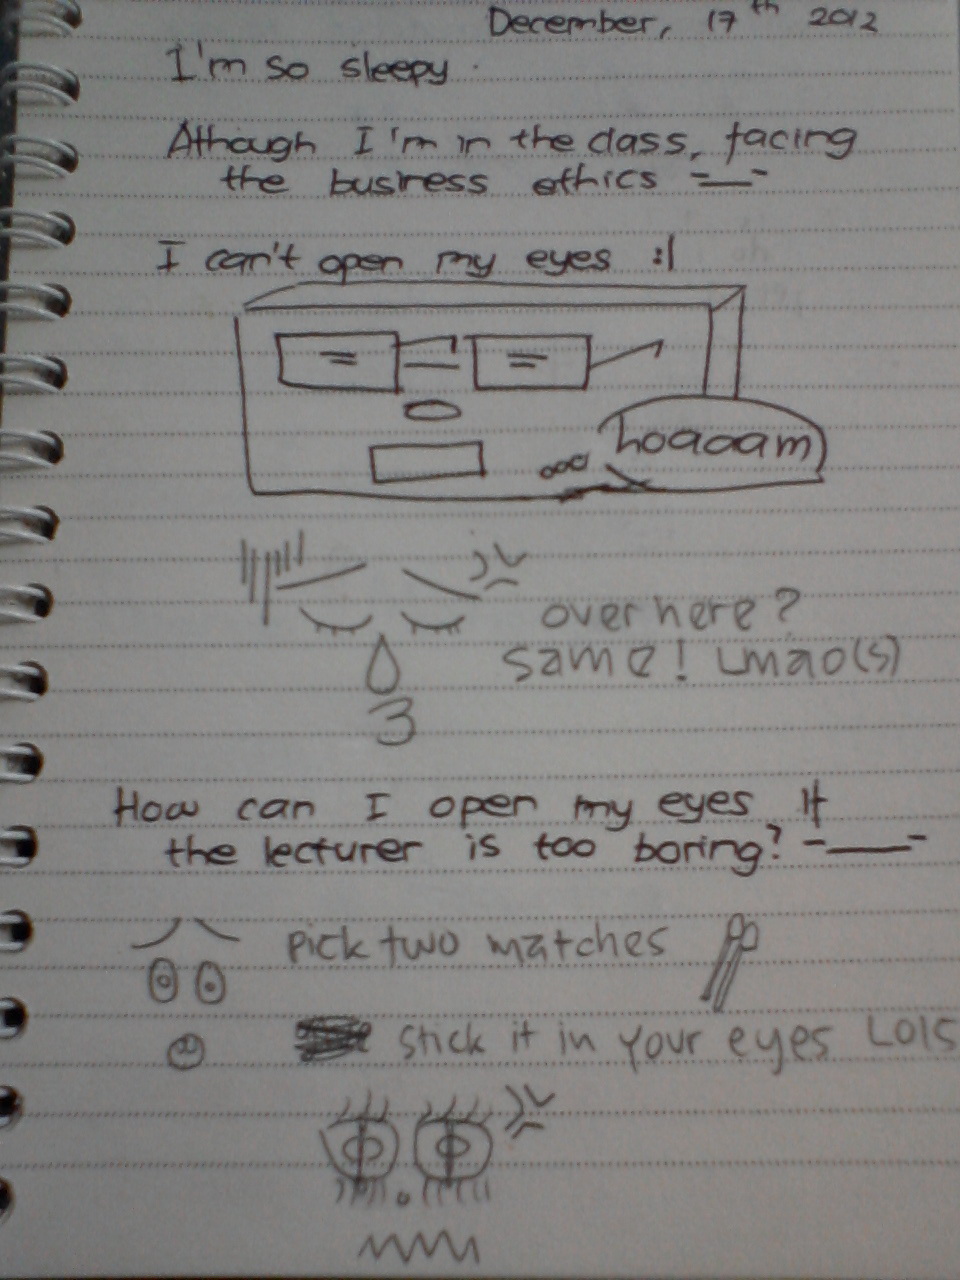 December, 17th 2012
I'm so sleepy.
Athough I'm in the class, facing
the business ethics -__-
I can't open my eyes :|
hoaaam
over here?
same! Lmao(s)
How can I open my eyes If
the lecturer is too boring? -___-
pick two matches
stick it in your eyes Lols